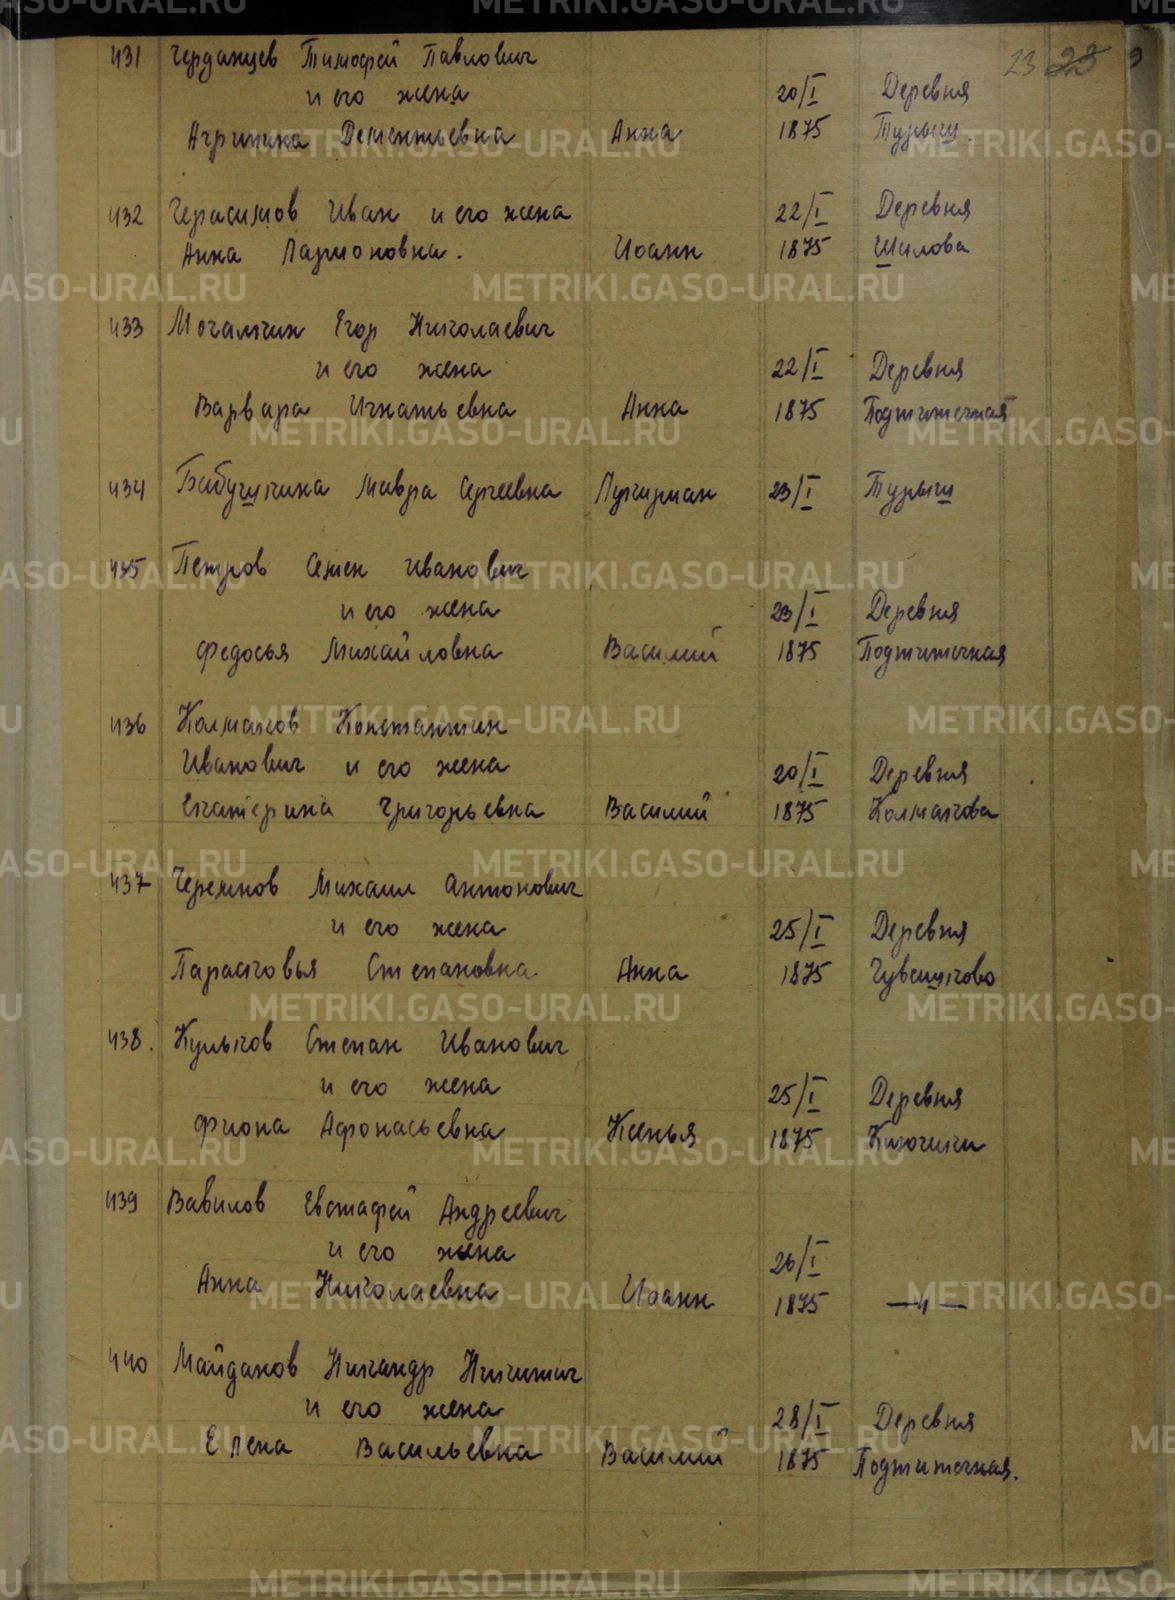 23 23
431 Черданцев Тимофей Павлович
и его жена 20/I Деревня
Агрипина Дементьевна Анна 1875 Турыш.
432 Герасимов Иван и его жена 22/I Деревня
Анна Ларионовна. Иоанн 1875 Шилова
433 Мочалкин Егор Николаевич
и его жена 22/I Деревня
Варвара Игнатьевна Анна 1875 Подгитечная
434 Бабушкина Мавра Сергеевна 23/I Турыш
435 Петров Семен Иванович
и его жена 23/I Деревня
Федосья Михайловна Василий 1875
436 Колмаков Константин
Иванович и его жена 20/I Деревня
Екатерина Григорьевна Василий 1875 Колмакова
437 Черемнов Михаил Антонович
и его жена 25/I Деревня
Парасковья Степановна Анна 1875 Чувашково
438. Кульков Степан Иванович
и его жена 25/I Деревня
Фиона Афонасьевна Ксенья 1875 Ключики
439 Вавилов Евстафей Андреевич
и его жена 26/I
Анна Николаевна Иоанн 1875 —"—
440 Майданов Никандр Никитич
и его жена 28/I Деревня
Елена Васильевна Василий 1875
METRIKI.GASO-URAL.RU